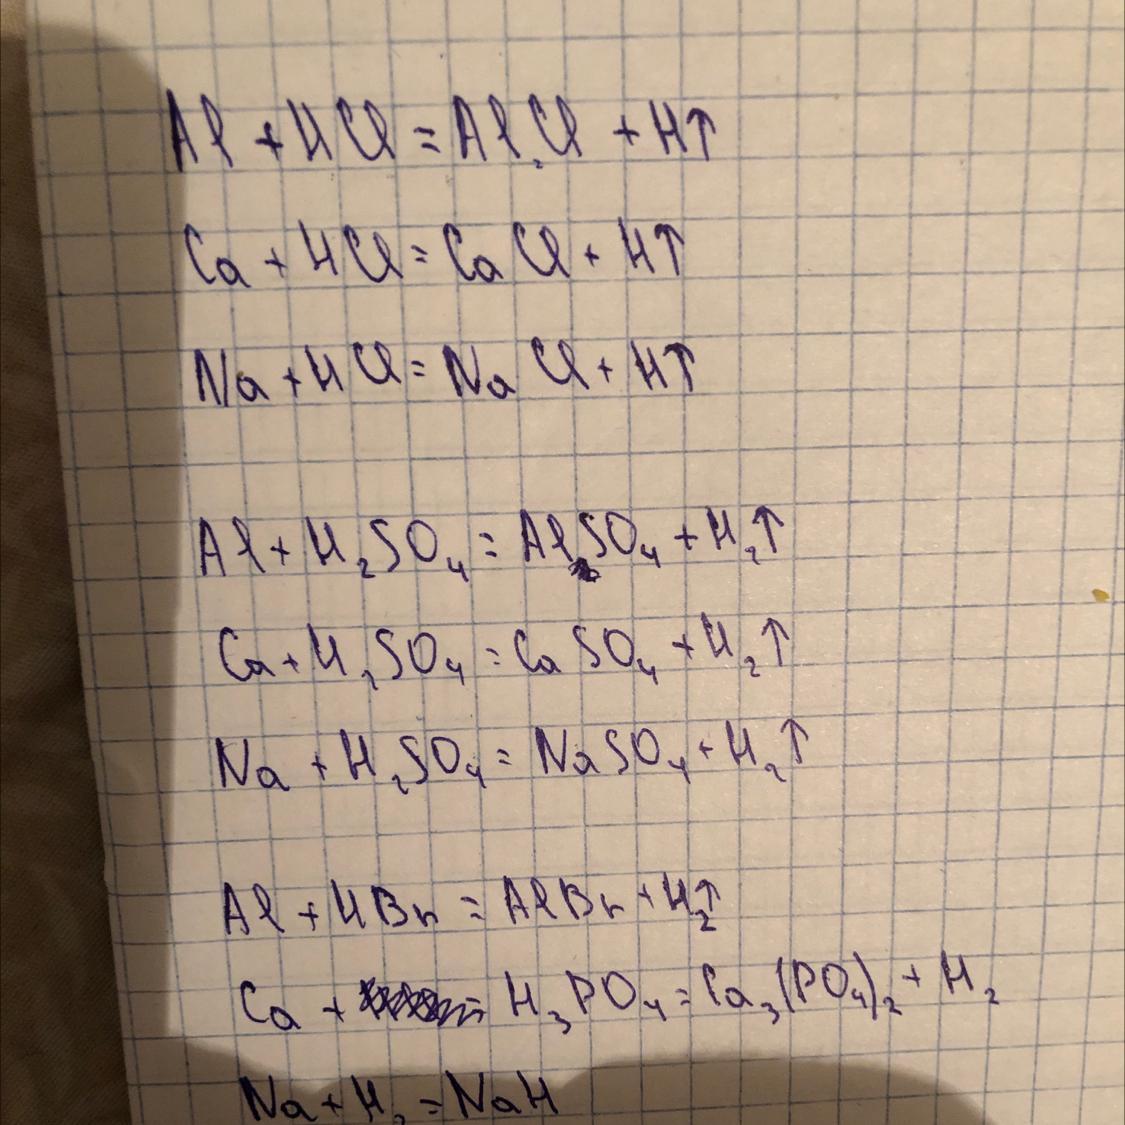 Al + HCl = AlCl + H↑
Ca + HCl = CaCl + H↑
Na + HCl = NaCl + H↑
Al + H₂SO₄ = AlSO₄ + H₂↑
Ca + H₂SO₄ = CaSO₄ + H₂↑
Na + H₂SO₄ = NaSO₄ + H₂↑
Al + HBr = AlBr + H₂↑
Ca + H₃PO₄ = Ca₃(PO₄)₂ + H₂
Na + H₂ = NaH